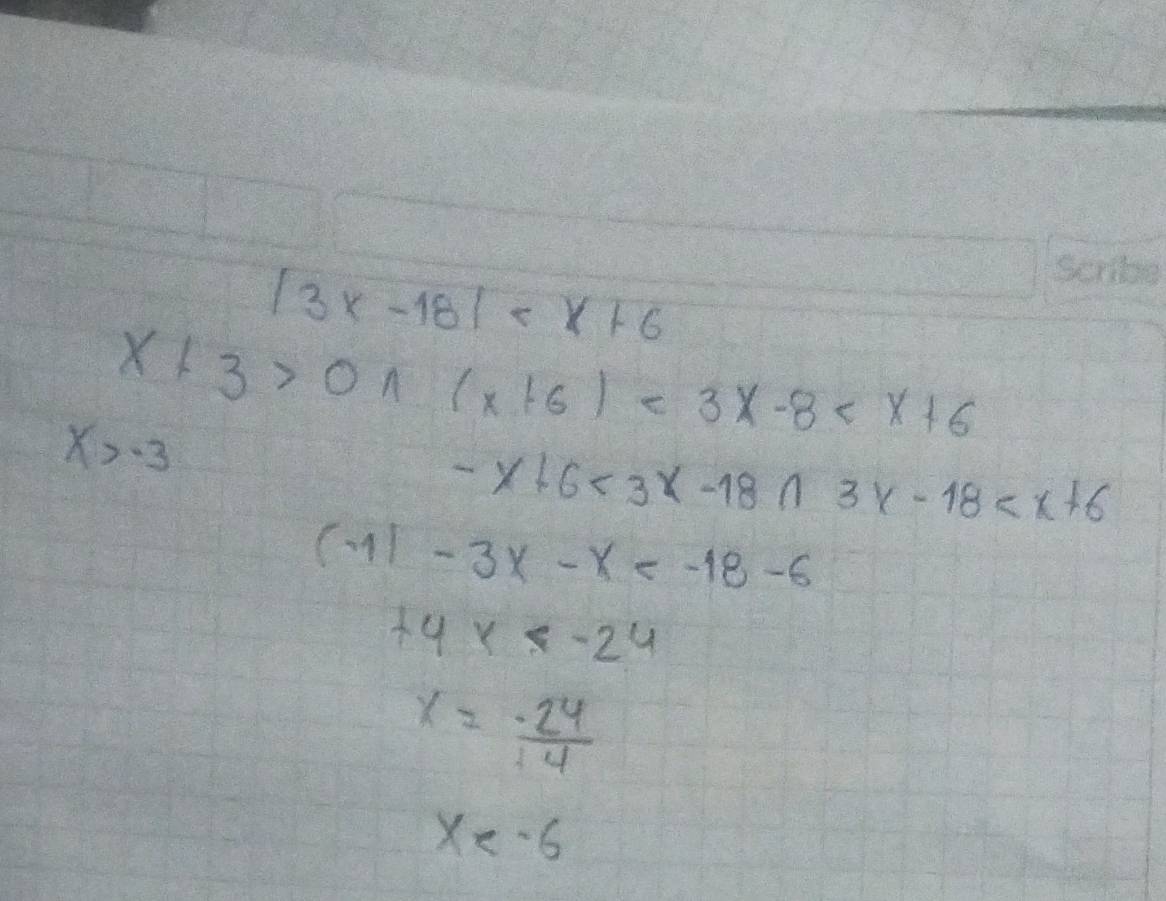 Scribe
|3x-18| < x+6
x+3>0 ∧ (x+6) < 3x-8 < x+6
x>-3
-x+6<3x-18 ∧ 3x-18<x+6
(-1) -3x-x < -18-6
+4x < -24
x = -24/+4
x < -6